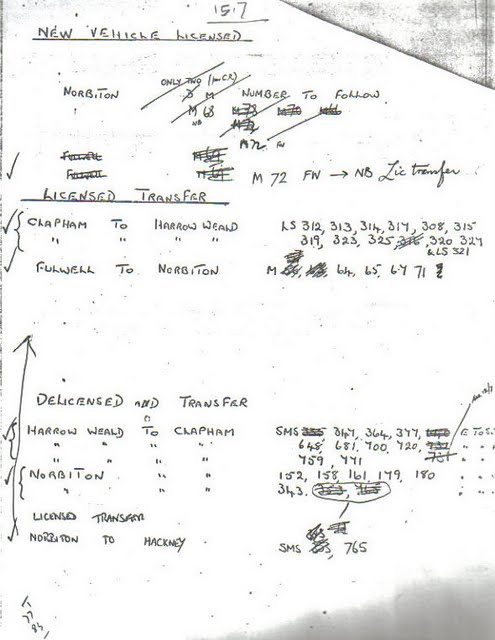 15.7
NEW VEHICLE LICENSED
ONLY TWO
NORBITON 3 M NUMBER TO FOLLOW
" M 68 M 78 M 70 M 66
NB
M 72 FW
FULWELL
FULWELL
M 72 FW → NB Lic transfer
LICENSED TRANSFER
CLAPHAM TO HARROW WEALD LS 312, 313, 314, 317, 308, 315
" " " " 319, 323, 325, 320 327
& LS 321
FULWELL TO NORBITON M 64, 65, 67 71
DELICENSED AND TRANSFER
HARROW WEALD TO CLAPHAM SMS 347, 364, 377,
" " " " 648, 681, 700, 720,
" " " " 759, 771
NORBITON " " 152, 158, 161, 179, 180
" " " 343.
LICENSED TRANSFER
NORBITON TO HACKNEY SMS 765